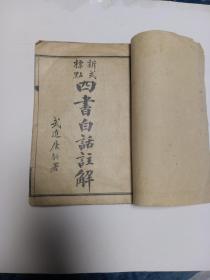 新式標點
四書白話註解
武進唐駝署